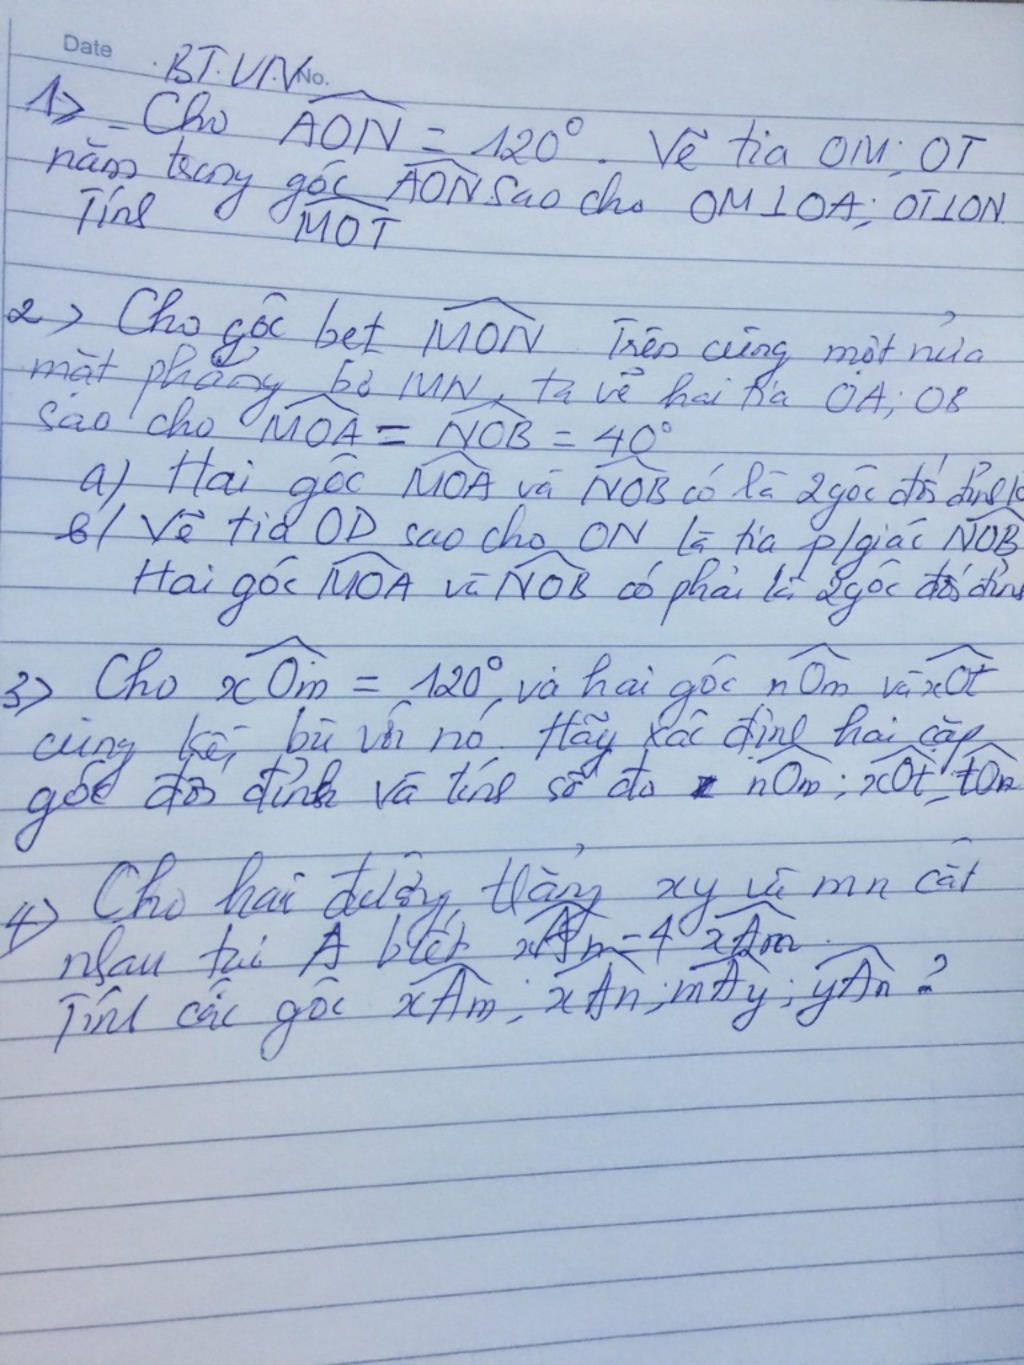 Date BT.VN No.
1> Cho AON = 120°. Vẽ tia OM; OT
nằm trong góc AON sao cho OM⊥OA; OT⊥ON
Tính MOT
2> Cho góc bẹt MON Trên cùng một nửa
mặt phẳng bờ MN, ta vẽ hai tia OA; OB
sao cho MOA = NOB = 40°
a) Hai góc MOA và NOB có là 2 góc đối đỉnh k
b/ Vẽ tia OD sao cho ON là tia p/giác NOB
Hai góc MOA và NOB có phải là 2 góc đối đỉnh
3> Cho xOm = 120°, và hai góc nOm và xOt
cùng kề, bù với nó. Hãy xác định hai cặp
góc đối đỉnh và tính số đo nOm; xOt; tOn
4> Cho hai đường thẳng xy và mn cắt
nhau tại A biết xAn = 4 xAm.
Tính các góc xAm; xAn; mAy; yAn?